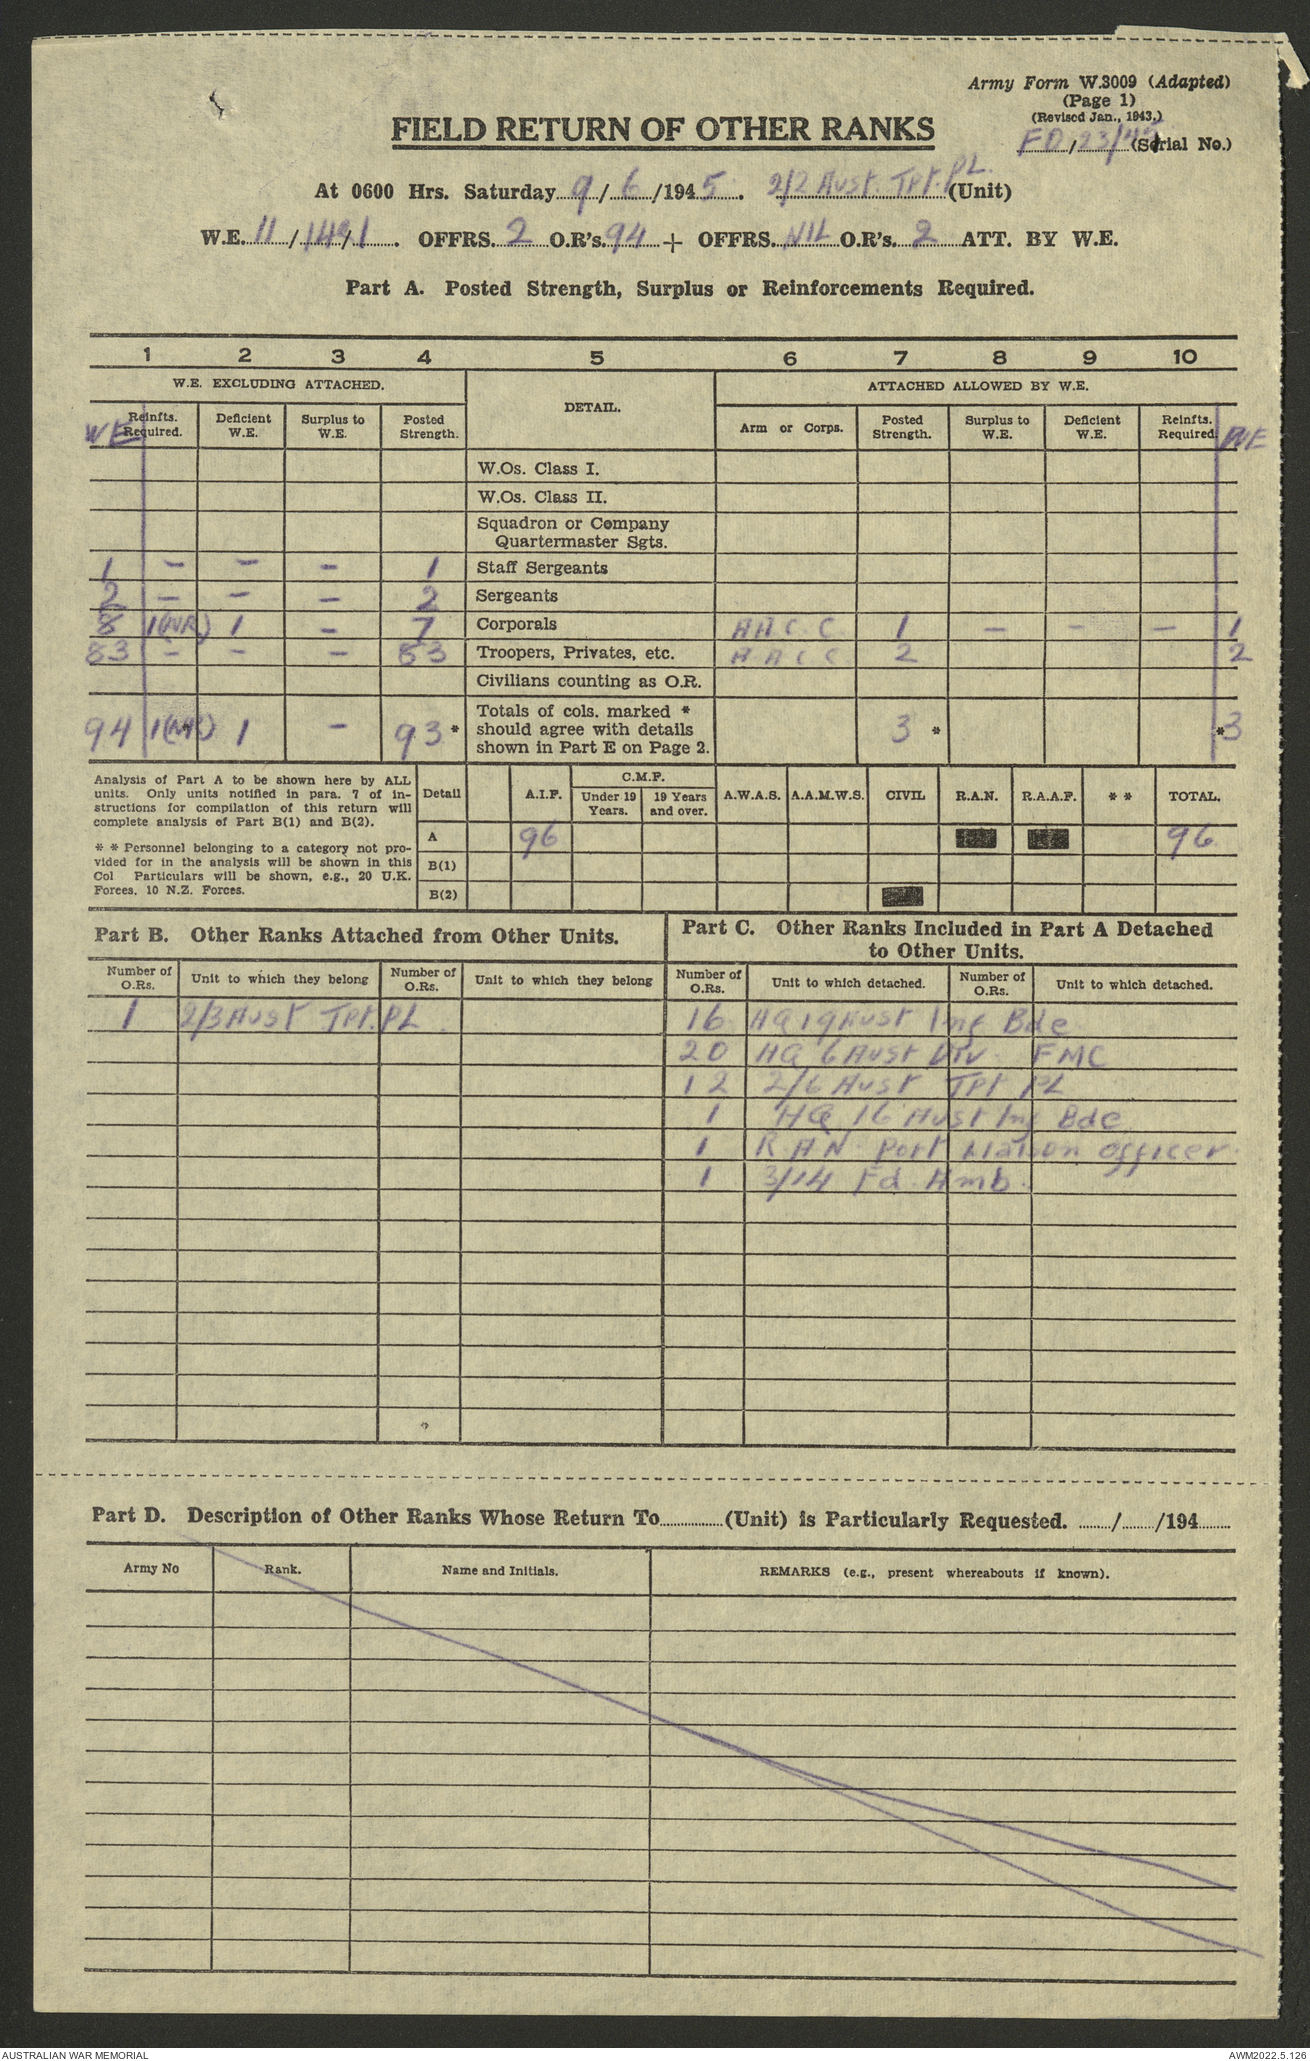 Army Form W.3009 (Adapted)
(Page 1)
(Revised Jan., 1943.)
FIELD RETURN OF OTHER RANKS
FD/23/45 (Serial No.)
At 0600 Hrs. Saturday 9/6/1945. 2/2 Aust. Tpt. PL (Unit)
W.E. 11/149/1. OFFRS. 2 O.R's. 94 + OFFRS. NIL O.R's. 2 ATT. BY W.E.
Part A. Posted Strength, Surplus or Reinforcements Required.
1 2 3 4 5 6 7 8 9 10
W.E. EXCLUDING ATTACHED. DETAIL. ATTACHED ALLOWED BY W.E.
WE Reinfts. Required. Deficient W.E. Surplus to W.E. Posted Strength. Arm or Corps. Posted Strength. Surplus to W.E. Deficient W.E. Reinfts. Required. WE
W.Os. Class I.
W.Os. Class II.
Squadron or Company
Quartermaster Sgts.
1 – – – 1 Staff Sergeants
2 – – – 2 Sergeants
8 1(NR) 1 – 7 Corporals AACC 1 – – – 1
83 – – – 83 Troopers, Privates, etc. AACC 2 2
Civilians counting as O.R.
94 1(NR) 1 – 93 * Totals of cols. marked * 3 * * 3
should agree with details
shown in Part E on Page 2.
Analysis of Part A to be shown here by ALL
units. Only units notified in para. 7 of in-
structions for compilation of this return will
complete analysis of Part B(1) and B(2).
* * Personnel belonging to a category not pro-
vided for in the analysis will be shown in this
Col Particulars will be shown, e.g., 20 U.K.
Forces, 10 N.Z. Forces.
Detail A.I.F. C.M.F. Under 19 Years. 19 Years and over. A.W.A.S. A.A.M.W.S. CIVIL R.A.N. R.A.A.F. * * TOTAL.
A 96 96
B(1)
B(2)
Part B. Other Ranks Attached from Other Units.
Number of O.Rs. Unit to which they belong Number of O.Rs. Unit to which they belong
1 2/3 Aust Tpt. PL
Part C. Other Ranks Included in Part A Detached
to Other Units.
Number of O.Rs. Unit to which detached. Number of O.Rs. Unit to which detached.
16 HQ 19 Aust Inf Bde
20 HQ 6 Aust Div. FMC
12 2/6 Aust Tpt PL
1 HQ 16 Aust Inf Bde
1 RAN Port Liaison Officer.
1 3/14 Fd. Amb.
Part D. Description of Other Ranks Whose Return To (Unit) is Particularly Requested. / /194
Army No Rank. Name and Initials. REMARKS (e.g., present whereabouts if known).
AUSTRALIAN WAR MEMORIAL
AWM2022.5.126